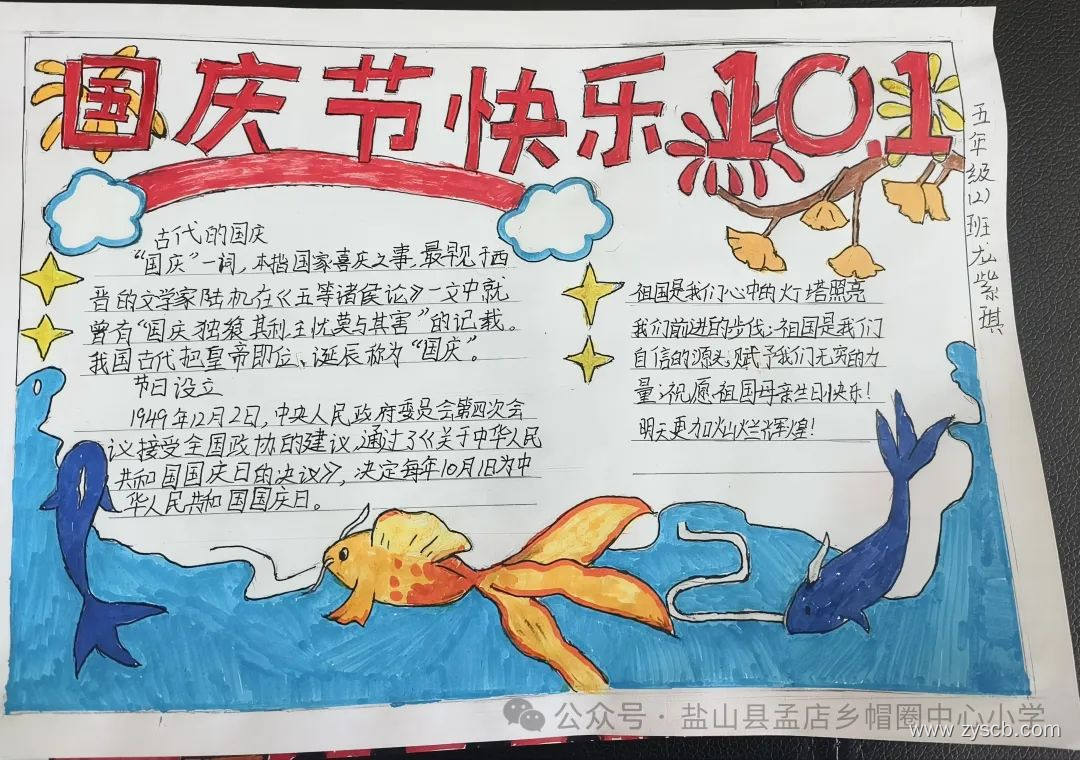 国庆节快乐 10.1
五年级(2)班龙紫琪
古代的国庆
“国庆”一词,本指国家喜庆之事,最早见于西
晋的文学家陆机在《五等诸侯论》一文中就
曾有“国庆独飨其利,主忧莫与其害”的记载。
我国古代把皇帝即位、诞辰称为“国庆”。
节日设立
1949年12月2日,中央人民政府委员会第四次会
议接受全国政协的建议,通过了《关于中华人民
共和国国庆日的决议》,决定每年10月1日为中
华人民共和国国庆日。
祖国是我们心中的灯塔照亮
我们前进的步伐;祖国是我们
自信的源头,赋予我们无穷的力
量;祝愿祖国母亲生日快乐!
明天更加灿烂辉煌!
公众号·盐山县孟店乡帽圈中心小学
www.zyscb.com